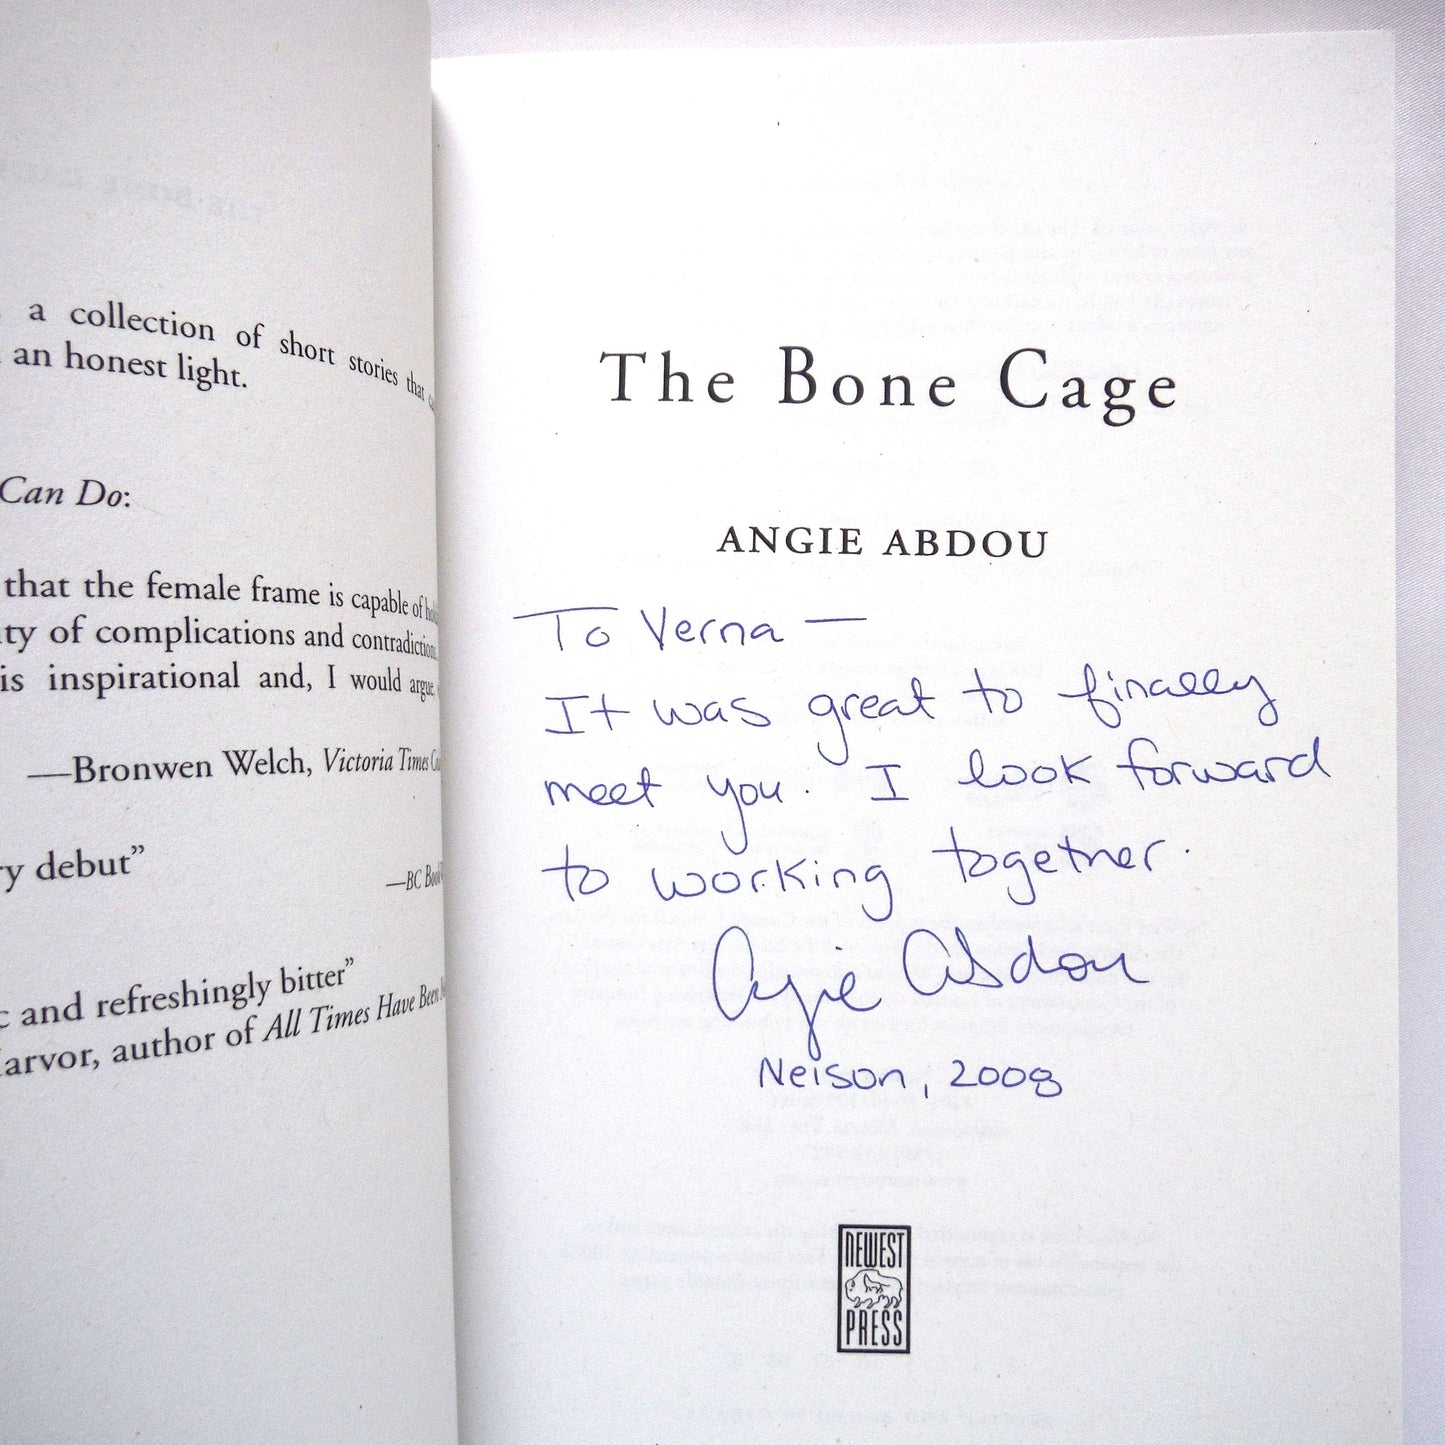 a collection of short stories that
an honest light.
Can Do:
that the female frame is capable of
ty of complications and contradictions
is inspirational and, I would argue,
—Bronwen Welch, Victoria Times
y debut”
—BC Book
c and refreshingly bitter”
arvor, author of All Times Have Been
The Bone Cage
ANGIE ABDOU
To Verna —
It was great to finally
meet you. I look forward
to working together.
Angie Abdou
Nelson, 2008
NEWEST
PRESS